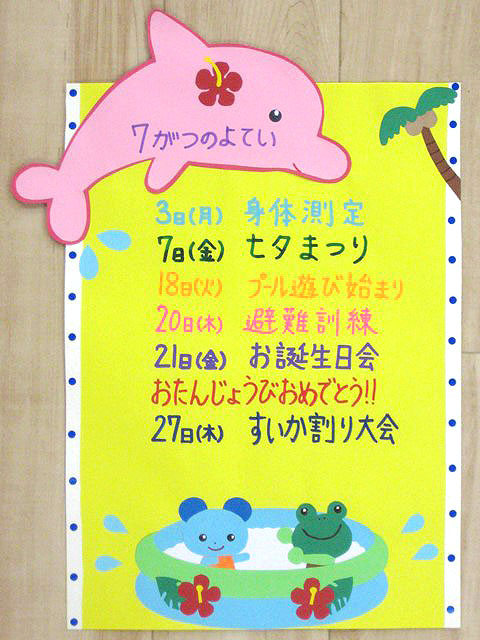 7がつのよてい
3日(月) 身体測定
7日(金) 七夕まつり
18日(火) プール遊び始まり
20日(木) 避難訓練
21日(金) お誕生日会
おたんじょうびおめでとう!!
27日(木) すいか割り大会